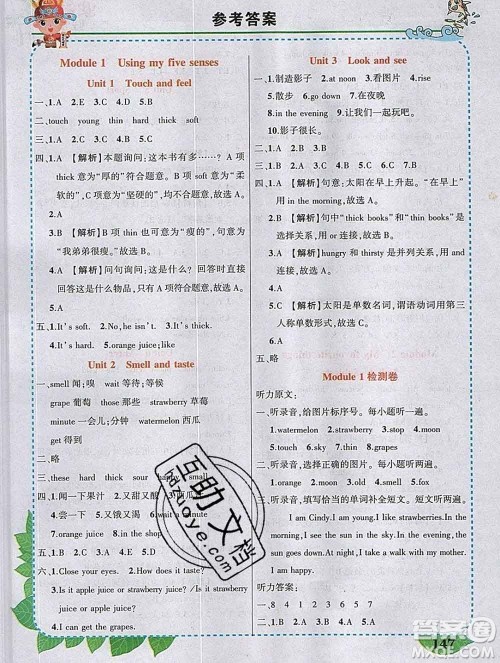 参考答案
Module 1 Using my five senses
Unit 1 Touch and feel
一、1.A 2.E 3.C 4.D 5.B
二、touch young thin hard thick soft
三、1.B 2.A 3.A
四、1.A 【解析】本题询问：这本书有多……？ A 项
thick 意为“厚的”符合题意。B 项 soft 意为“柔
软的”，C 项意为“坚硬的”，均不合题意，故选 A。
2.A
3.B 【解析】B 项 thin 可意为“瘦的”，句意为
“我弟弟很瘦”。故选 B。
4.A 【解析】问句询问：这是什么？ 回答时直接
回答这是什么物品，只有 A 项符合题意，故选 A。
5.A
五、1.It's soft. 2.No, he isn't. 3.It's thick.
4.It's an orange juice; like
Unit 2 Smell and taste
一、smell 闻；嗅 wait 等待；等候
grape 葡萄 those 那些 strawberry 草莓
minute 一会儿；分钟 watermelon 西瓜
get 得到
二、略
三、thick hard these sour happy small
四、1.闻一下果汁 2.又甜又酸 3.西瓜
4.尝一下 5.又饿又渴
6.orange juice 7.in the shop
五、1.B 2.C 3.A 4.A 5.B
六、1.Close your eyes. 2.How does it smell?
3.Is it apple juice or strawberry juice?/Is it strawberry
juice or apple juice?
4.You can taste the grapes.
Unit 3 Look and see
一、1.制造影子 2.at noon 3.看图片 4.rise
5.散步 6.go down 7.在夜晚
8.in the evening 9.让我们一起玩吧。
10.影子很长。
二、1.A 2.B 3.B 4.A
三、1.C 2.A 3.D 4.B
四、1.B 【解析】句意：太阳在早上升起。“在早上”用
in the morning, 故选 B。
2.B 【解析】句中“thick books”和“thin books”
是选择关系，用 or 连接，故选 B。
3.A 【解析】hungry 和 thirsty 是并列关系，用 and
连接，故选 A。
4.C 【解析】太阳是单数名词，谓语动词用第三
人称单数形式，故选 C。
五、略
Module 1 检测卷
听力原文：
一、听录音，给图片标序号。每小题听一遍。
1.orange 2.watermelon 3.strawberry 4.stop
5.touch 6.sky 7.thin 8.grapes
二、听录音，选择正确的图片。每小题听两遍。
1.strawberry 2.orange 3.moon 4.soft 5.fox
三、听录音，填写恰当的单词补全短文。短文听两遍。
I am Cindy. I am young. I like strawberries. They
are sour and sweet. In the evening, the sun goes
down. At night, I take a walk with my mother.
I am happy.
听力答案：
一、8 4 1 2 5 7 6 3
二、1.B 2.B 3.A 4.B 5.A
147
互助文档
huzuoye.com
答案圈
MXQE.COM